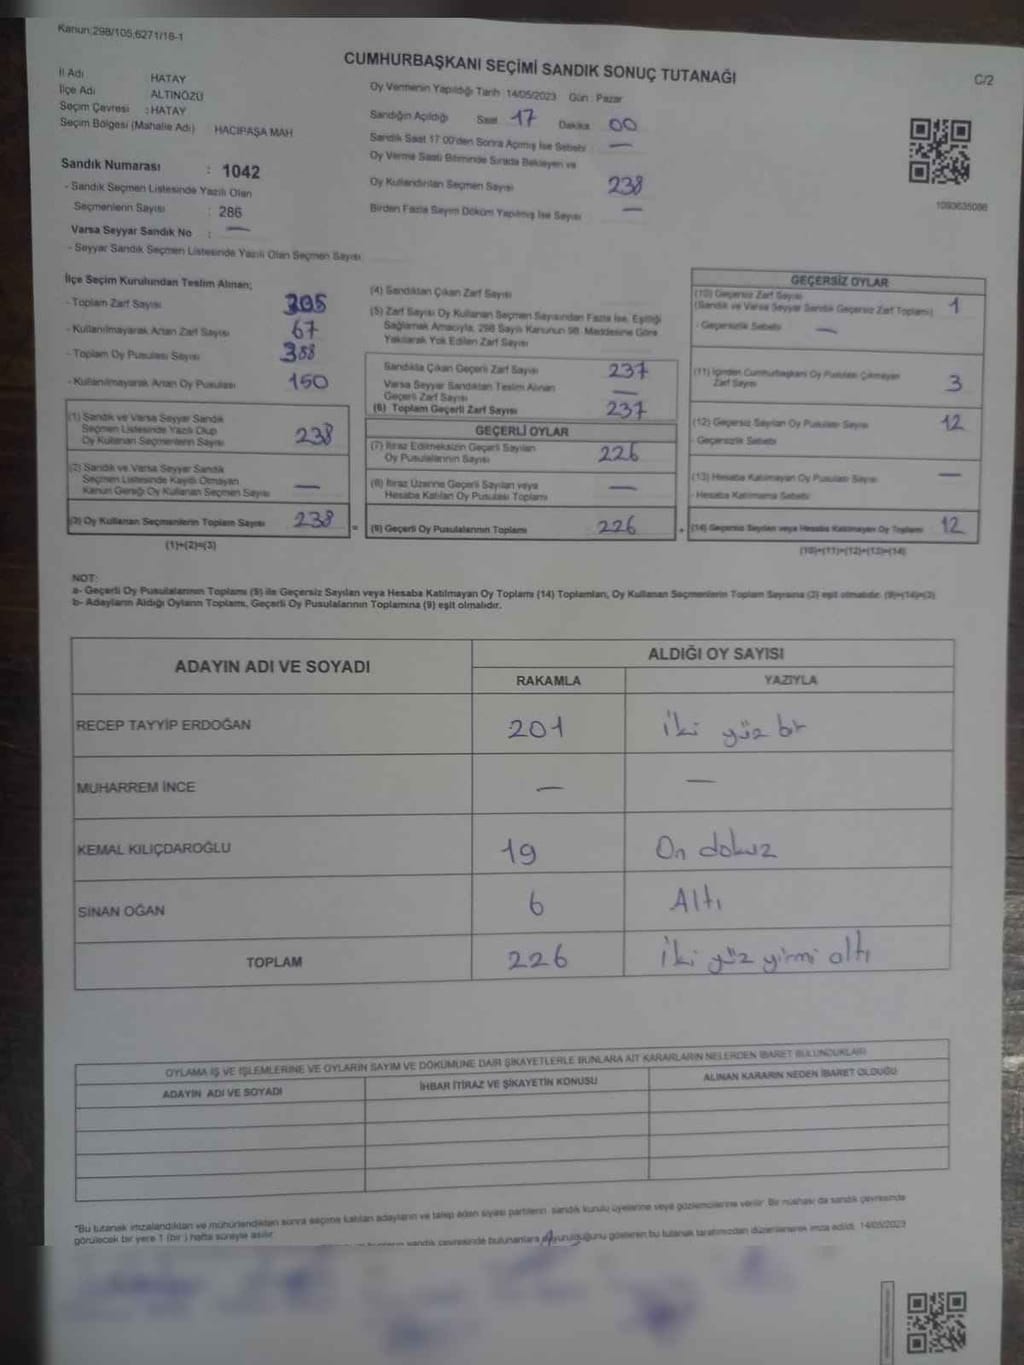 Kanun:298/105,6271/18-1
CUMHURBAŞKANI SEÇİMİ SANDIK SONUÇ TUTANAĞI
C/2
İl Adı HATAY
İlçe Adı ALTINÖZÜ
Seçim Çevresi : HATAY
Seçim Bölgesi (Mahalle Adı) HACIPAŞA MAH
Sandık Numarası : 1042
- Sandık Seçmen Listesinde Yazılı Olan
Seçmenlerin Sayısı : 286
Varsa Seyyar Sandık No : —
- Seyyar Sandık Seçmen Listesinde Yazılı Olan Seçmen Sayısı
Oy Vermenin Yapıldığı Tarih :14/05/2023 Gün : Pazar
Sandığın Açıldığı Saat 17 Dakika 00
Sandık Saat 17:00'den Sonra Açılmış İse Sebebi —
Oy Verme Saati Bitiminde Sırada Bekleyen ve
Oy Kullandırılan Seçmen Sayısı 238
Birden Fazla Sayım Döküm Yapılmış İse Sayısı —
1093635086
İlçe Seçim Kurulundan Teslim Alınan;
- Toplam Zarf Sayısı 305
- Kullanılmayarak Artan Zarf Sayısı 67
- Toplam Oy Pusulası Sayısı 388
- Kullanılmayarak Artan Oy Pusulası 150
(1) Sandık ve Varsa Seyyar Sandık
Seçmen Listesinde Yazılı Olup
Oy Kullanan Seçmenlerin Sayısı 238
(2) Sandık ve Varsa Seyyar Sandık
Seçmen Listesinde Kaydı Olmayan
Kanun Gereği Oy Kullanan Seçmen Sayısı —
(3) Oy Kullanan Seçmenlerin Toplam Sayısı 238
(1)+(2)=(3)
(4) Sandıktan Çıkan Zarf Sayısı
(5) Zarf Sayısı Oy Kullanan Seçmen Sayısından Fazla İse, Eşitliği
Sağlamak Amacıyla, 298 Sayılı Kanunun 98. Maddesine Göre
Yakılarak Yok Edilen Zarf Sayısı
Sandıkta Çıkan Geçerli Zarf Sayısı 237
Varsa Seyyar Sandıktan Teslim Alınan
Geçerli Zarf Sayısı —
(6) Toplam Geçerli Zarf Sayısı 237
GEÇERLİ OYLAR
(7) İtiraz Edilmeksizin Geçerli Sayılan
Oy Pusulalarının Sayısı 226
(8) İtiraz Üzerine Geçerli Sayılan veya
Hesaba Katılan Oy Pusulası Toplamı —
= (9) Geçerli Oy Pusulalarının Toplamı 226
GEÇERSİZ OYLAR
(10) Geçersiz Zarf Sayısı
(Sandık ve Varsa Seyyar Sandık Geçersiz Zarf Toplamı) 1
- Geçersizlik Sebebi —
(11) İçinden Cumhurbaşkanı Oy Pusulası Çıkmayan
Zarf Sayısı 3
(12) Geçersiz Sayılan Oy Pusulası Sayısı 12
- Geçersizlik Sebebi
(13) Hesaba Katılmayan Oy Pusulası Sayısı —
- Hesaba Katılmama Sebebi
+ (14) Geçersiz Sayılan veya Hesaba Katılmayan Oy Toplamı 12
(10)+(11)+(12)+(13)=(14)
NOT:
a- Geçerli Oy Pusulalarının Toplamı (9) ile Geçersiz Sayılan veya Hesaba Katılmayan Oy Toplamı (14) Toplamları, Oy Kullanan Seçmenlerin Toplam Sayısına (3) eşit olmalıdır. (9)+(14)=(3)
b- Adayların Aldığı Oyların Toplamı, Geçerli Oy Pusulalarının Toplamına (9) eşit olmalıdır.
ADAYIN ADI VE SOYADI
ALDIĞI OY SAYISI
RAKAMLA YAZIYLA
RECEP TAYYİP ERDOĞAN 201 iki yüz bir
MUHARREM İNCE — —
KEMAL KILIÇDAROĞLU 19 On dokuz
SİNAN OĞAN 6 Altı
TOPLAM 226 iki yüz yirmi altı
OYLAMA İŞ VE İŞLEMLERİNE VE OYLARIN SAYIM VE DÖKÜMÜNE DAİR ŞİKAYETLERLE BUNLARA AİT KARARLARIN NELERDEN İBARET BULUNDUKLARI
ADAYIN ADI VE SOYADI İHBAR İTİRAZ VE ŞİKAYETİN KONUSU ALINAN KARARIN NEDEN İBARET OLDUĞU
*Bu tutanak imzalandıktan ve mühürlendikten sonra seçime katılan adayların ve talep eden siyasi partilerin sandık kurulu üyelerine veya gözlemcilerine verilir. Bir nüshası da sandık çevresinde
görülecek bir yere 1 (bir) hafta süreyle asılır.
sandık çevresinde bulunanlara duyurulduğunu gösteren bu tutanak tarafımızdan düzenlenerek imza edildi. 14/05/2023